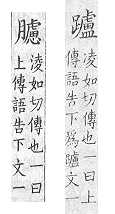 𨇖
凌如切傳也一曰上
傳語告下爲臚文一
臚
凌如切傳也一曰
上傳語告下文一